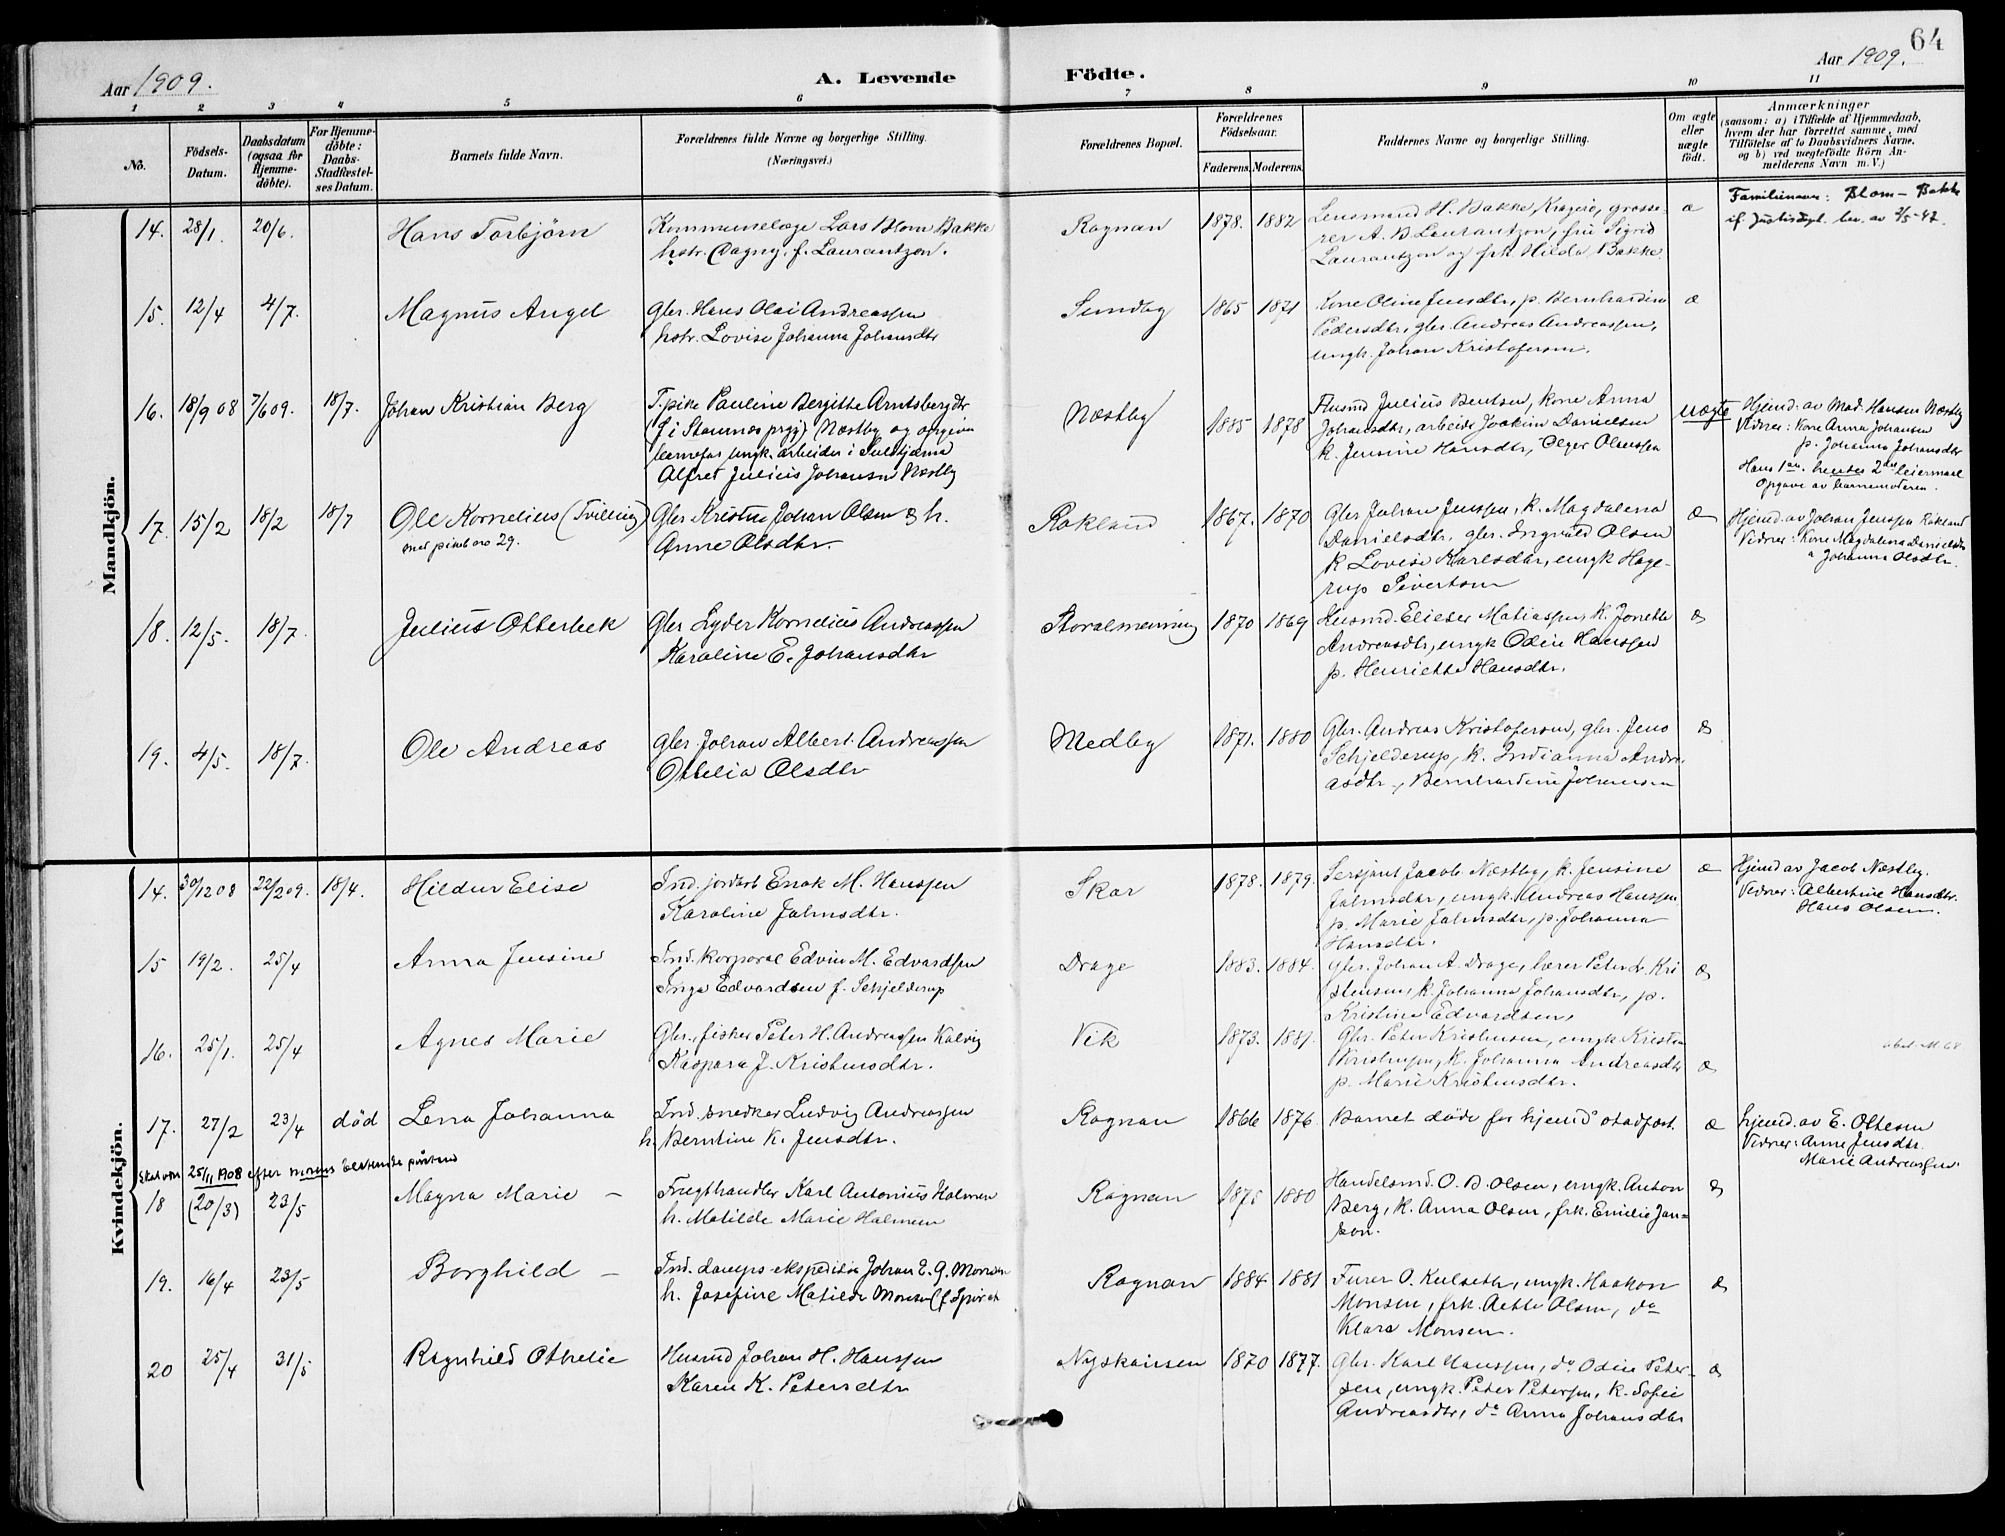 64
Aar 1909.
A. Levende Födte.
Aar 1909.
1 2 3 4 5 6 7 8 9 10 11
No.
Födsels-Datum.
Daabsdatum (ogsaa for Hjemme-döbte).
For Hjemme-döbte: Daabs-Stadfæstel-ses Datum.
Barnets fulde Navn.
Forældrenes fulde Navne og borgerlige Stilling.
(Næringsvei.)
Forældrenes Bopæl.
Forældrenes Födselsaar.
Faderens. Moderens.
Faddernes Navne og borgerlige Stilling.
Om ægte eller uægte födt.
Anmærkninger
(saasom: a) i Tilfælde af Hjemmedaab,
hvem der har forrettet samme, med
Tilföielse af to Daabsvidners Navne.
og b) ved uægtefödte Börn An-
melderens Navn m. V.)
Mandkjön.
14. 28/1. 20/6. Hans Torbjörn
Kommunelæge Lars Blom Bakke
hstr. Dagny, f. Laurantzon.
Rognan 1878. 1882
Lensmand H. Bakke, Kragerö, grosse-
rer A. B. Laurantzon, fru Sigrid
Laurantzon og frk. Hilda Bakke
æ
Familienavn: Blom-Bakke
if. Justisdept. bev. av 2/5-47.
15. 12/4 4/7. Magnus Angel
Gbr. Hans Olai Andreassen
hstr. Lovise Johanna Johansdtr
Sundby 1865 1871
Kone Oline Jensdtr, p. Bernhardine
Pedersdtr, gbr. Andreas Andreassen,
ungk. Johan Kristofersen.
æ
16. 18/9 08 7/6 09. 18/7. Johan Kristian Berg
T. pike Pauline Bergitte Arntsbergdtr
(f i Stamnes prgj) Næstby og opgiven
barnefar ungk. arbeider i Sulitjelma
Alfret Julius Johansen Næstby
Næstby 1885 1878
Husmd Julius Bentsen, kone Anna
Johansdtr, arbeider Joakim Danielsen
k. Jensine Hansdtr, Olger Olaussen
uægte
Hjemd. av Mad. Hansen Næstby
Vidner: Kone Anna Johansen
p. Johanna Johansdtr
Hans 1ste hendes 2det leiermaal
Opgave av barnemoderen.
17. 15/2 18/2 18/7 Ole Kornelius (Tvilling)
med pikebno 29.
Gbr Kristen Johan Olsen & h.
Anne Olsdtr.
Rokland 1867. 1870
Gbr Johan Jenssen, k. Magdalena
Danielsdtr, gbr. Ingvald Olsen
k Lovise Karlsdtr, ungk Hage-
rup Sivertsen
æ
Hjemd. av Johan Jenssen Rokland
Vidner: Kone Magdalena Danielsdtr
" Johanna Olsdtr.
18. 12/5. 18/7. Julius Otterbek
Gbr Lyder Kornelius Andreassen
Karoline E. Johansdtr
Storalmenning 1870 1869
Husmd. Elieser Matiassen, k. Jonette
Andreasdtr, ungk Odin Hanssen
p. Henriette Hansdtr.
æ
19. 4/5. 18/7. Ole Andreas
Gbr. Johan Albert Andreassen
Ottelia Olsdtr
Medby 1871. 1880
Gbr. Andreas Kristofersen, gbr. Jens
Schjelderup, k. Indianna Andre-
asdtr, Bernhardine Johansen
æ
Kvindekjön.
14. 30/12 08 22/2 09. 18/4. Hildur Elise
Ind. jordarb Enok M. Hanssen
Karoline Jahnsdtr.
Skar 1878. 1879.
Sersjant Jacob Næstby, k. Jensine
Jahnsdtr, ungk. Andreas Hanssen
p. Marie Jahnsdtr, p. Johanna
Hansdtr.
æ
Hjemd av Jacob Næstby.
Vidner: Albertine Hansdtr.
Hans Olsen.
15 19/2. 25/4 Anna Jensine
Ind. korporal Edvin M. Edvardsen
Inga Edvardsen f. Schjelderup
Drage 1883. 1884.
Gbr. Johan A. Drage, lærer Peter dr. Kri
stensen, k. Johanna Johansdtr, p.
Kristine Edvardsen,
æ
16. 25/1. 25/4 Agnes Marie
Gbr., fisker Peter H. Andreassen Kalvig
Kaspara J. Kristensdtr.
Vik 1873. 1881.
Gbr. Peter Kristensen, ungk Kristen
Kristensen, K. Johanna Andreasdtr
p. Marie Kristensdtr.
æ
17. 27/2 23/4 död Lena Johanna
Ind. snedker Ludvig Andreassen
h. Berntine K. Jensdtr.
Rognan 1866 1876.
Barnet döde för hjemd stadfæst.
æ
hjemd. av E. Ottesen
Vidner: Anne Jensdtr.
Marie Andreassen.
Skal være 25/11 1908 efter morens bestemte påstand
18 (20/3) 23/5 Magna Marie –
Frugthandler Karl Antonius Halmen
h. Matilde Marie Halmen
Rognan 1875 1880
Handelsmd. O. B. Olsen, ungk. Anton
Berg, k. Anna Olsen, frk. Emilie Jan-
son.
æ
19. 16/4 23/5 Borghild –
Ind. damps-ekspeditör Johan E. G. Monsen
h. Josefine Matilde Monsen (f. Spörck
Rognan 1884 1881
Furer O. Kulseth, ungk. Haakon
Monsen, frk. Aette Olsen, do
Klara Monsen.
æ
20 25/4 31/5 Ragnhild Othelie
Husmd Johan H. Hanssen
Karen K. Petersdtr
Nyskaiisen 1870 1877.
Gbr. Karl Hanssen, do Odin Peter-
sen, ungk. Peter Petersen, k. Sofie
Andreasdtr, do Anna Johansdtr
æ